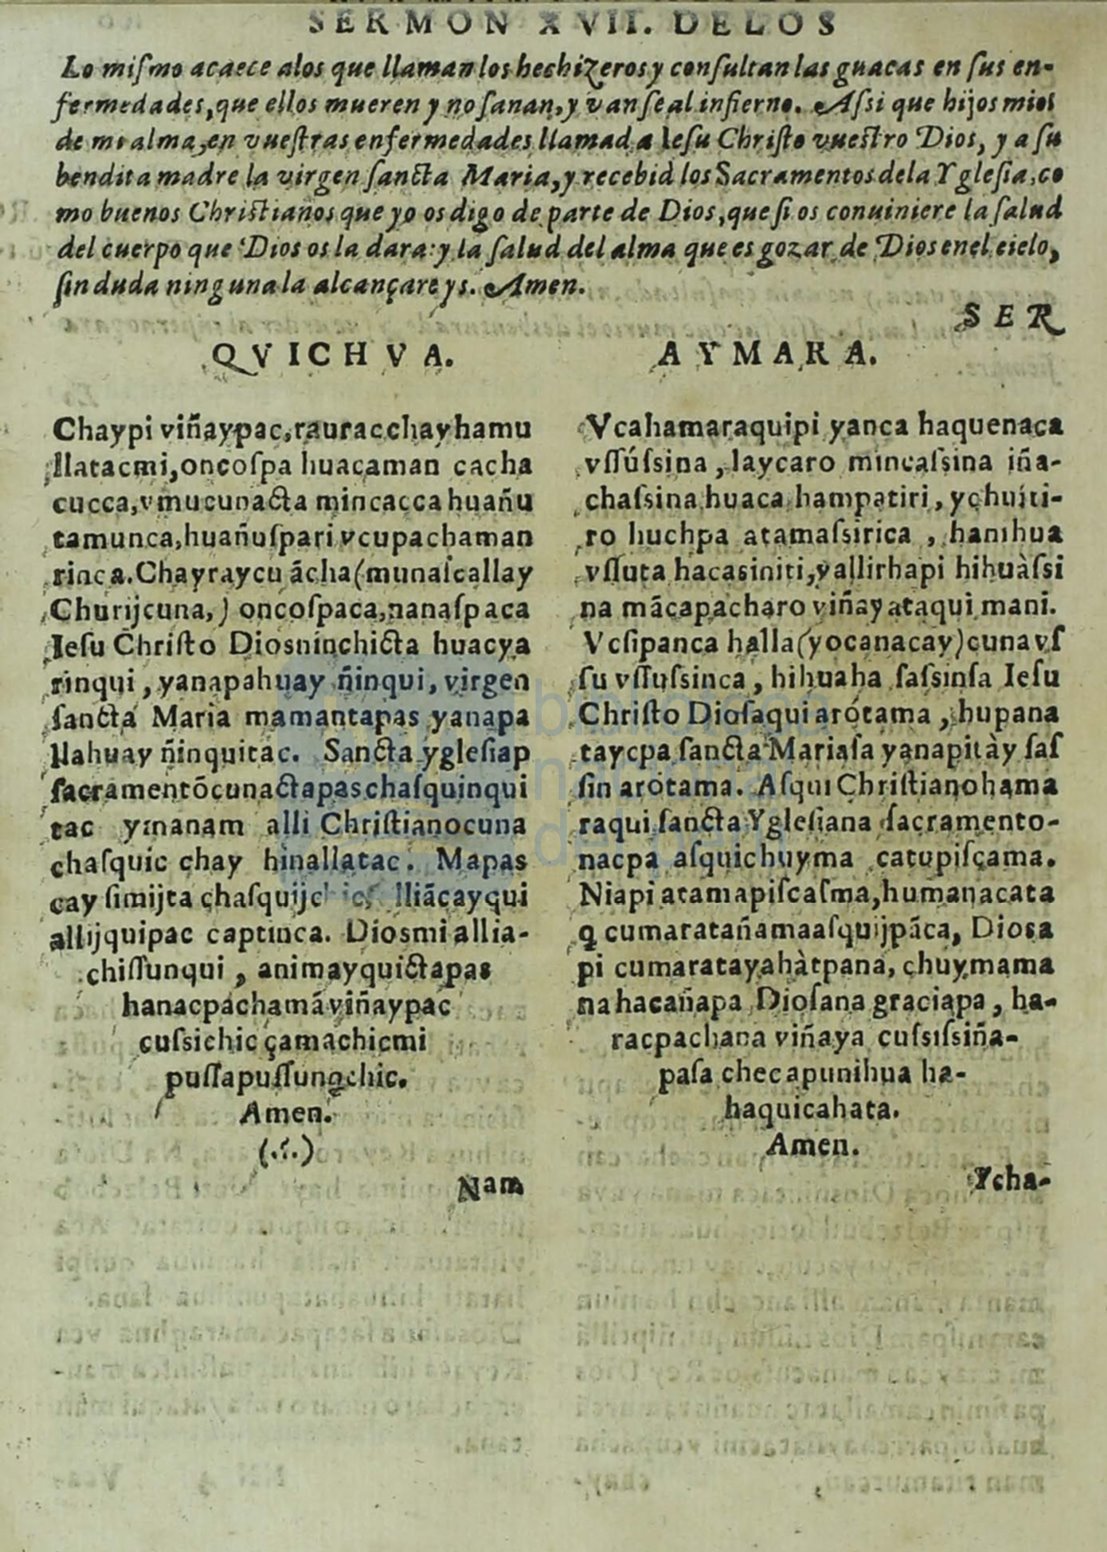 SERMON XVII. DELOS
Lo miſmo acaece alos que llaman los hechizeros y conſultan las guacas en ſus en-
fermedades, que ellos mueren y no ſanan, y van ſe al infierno. Aſsi que hijos mios
de mi alma, en vueſtras enfermedades llamad a Ieſu Chriſto vueſtro Dios, y a ſu
bendita madre la virgen ſancta Maria, y recebid los Sacramentos dela Ygleſia, co
mo buenos Chriſtianos que yo os digo de parte de Dios, que ſi os conuiniere la ſalud
del cuerpo que Dios os la dara: y la ſalud del alma que es gozar de Dios enel cielo,
ſin duda ninguna la alcançareys. Amen.
SER
QVICHVA.
Chaypi viñaypac, rauracchayhamu
llatacmi, oncoſpa huacaman cacha
cucca, vmucunacta mincacca huañu
tamunca, huañuſpari vcupachaman
rinca. Chayraycu ãcha (munaſcallay
Churijcuna,) oncoſpaca, nanaſpaca
Ieſu Chriſto Diosninchicta huacya
rinqui, yanapahuay ñinqui, virgen
ſancta Maria mamantapas yanapa
llahuay ñinquitac. Sancta ygleſiap
ſacramentõcunactapas chaſquinqui
tac ymanam alli Chriſtianocuna
chaſquic chay hinallatac. Mapas
cay ſimijta chaſquijc lliãcayqui
allijquipac captinca. Diosmi allia-
chiſſunqui, animayquictapas
hanacpachamã viñaypac
cuſsichic çamachicmi
puſſapuſſunqchic.
Amen.
(.?.)
Nam
AYMARA.
Vcahamaraquipi yanca haquenaca
vſſúſsina, laycaro mincaſsina iña-
chaſsina huaca hampatiri, ychuiti-
ro huchpa atamaſsirica, hanihua
vſſuta hacasiniti, yallirhapi hihuàſsi
na mãcapacharo viñayataqui mani.
Vcſipanca halla (yocanacay) cuna vſ
ſu vſſuſsinca, hihuaha ſaſsinſa Ieſu
Chriſto Dioſaqui arótama, hupana
taycpa ſancta Mariaſa yanapitày ſaſ
ſin arotama. Aſqui Chriſtianohama
raqui ſancta Ygleſiana ſacramento-
nacpa aſquichuyma catupiſcama.
Niapi atamapiſcaſma, humanacata
q cumaratañamaaſquijpãca, Dioſa
pi cumaratayahàtpana, chuymama
na hacañapa Dioſana graciapa, ha-
racpachana viñaya cuſsiſsiña-
paſa checapunihua ha-
haquicahata.
Amen.
Ycha-